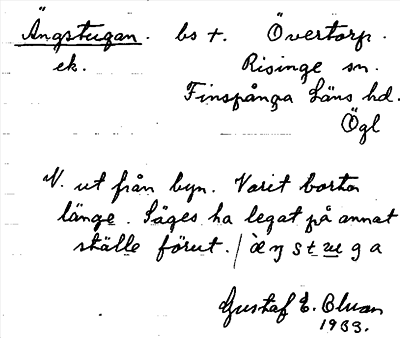 Ängstugan. bs t. Övertorp.
ek. Risinge sn.
Finspånga Läns hd.
Ögl
N. ut från byn. Varit borta
länge. Säges ha legat på annat
ställe förut. /
Gustaf E.
1933.